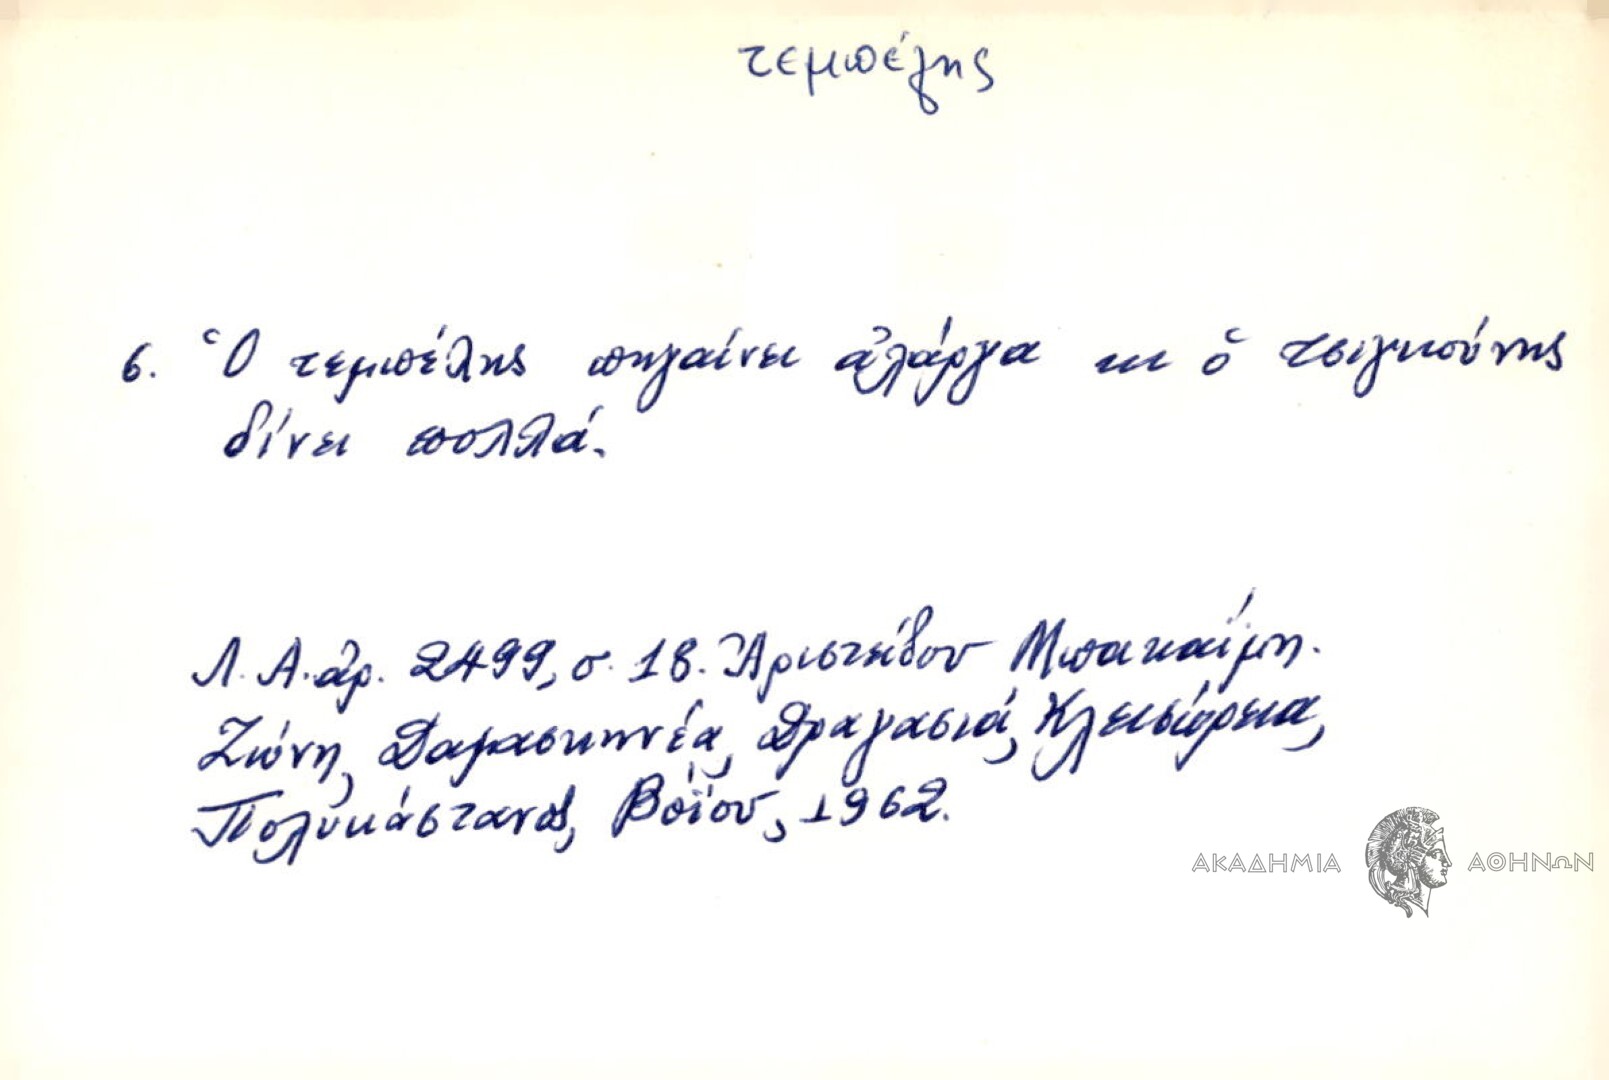 τεμπέλης
6. Ὁ τεμπέλης πηγαίνει ἀλάργα κι ὁ τσιγκούνης
δίνει πολλά.
Λ. Α. ἀρ. 2499, σ. 18. Ἀριστείδου Μπακαΐμη.
Ζώνη, Δαμασκηνέα, Δραγασιά, Κλεισώρεια,
Πολυκάστανο, Βοΐου, 1962.
ΑΚΑΔΗΜΙΑ ΑΘΗΝΩΝ